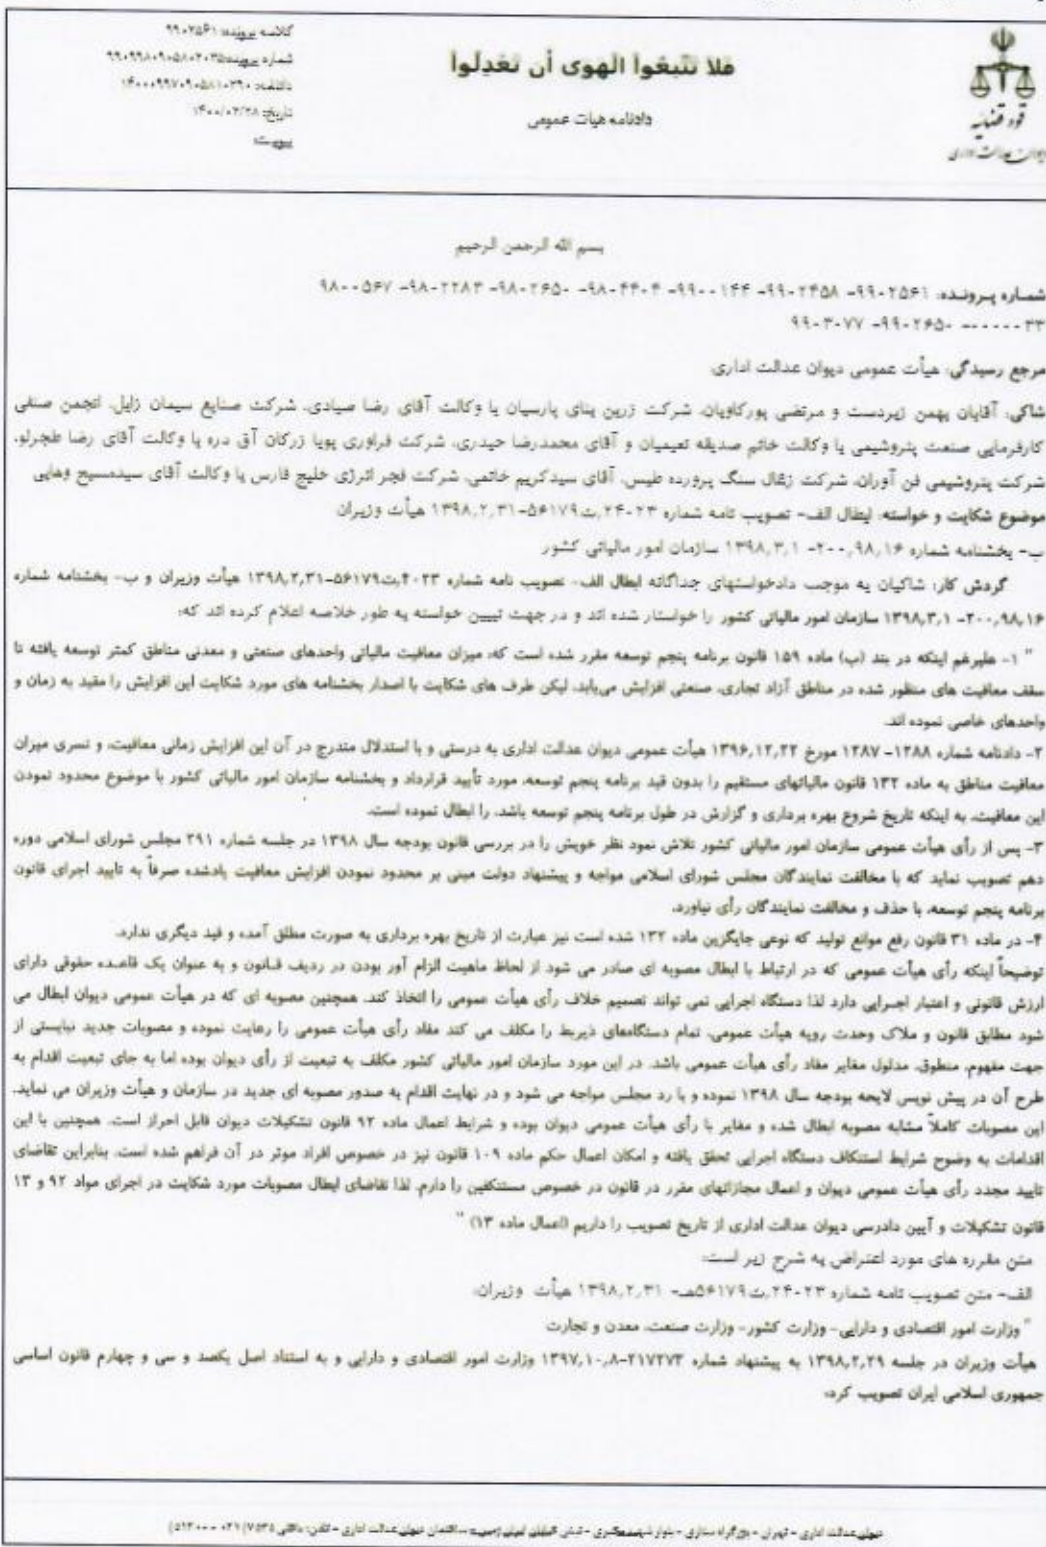 کلاسه پرونده: ۹۹۰۲۵۶۱
شماره پرونده: ۹۹۰۹۹۸۰۹۰۵۸۰۲۰۳۵
دادنامه: ۱۴۰۰۰۹۹۷۰۹۰۵۸۱۰۲۹۰
تاریخ: ۱۴۰۰/۰۲/۲۸
پیوست:
فلا تتبعوا الهوی أن تعدلوا
دادنامه هیات عمومی
قوه قضاییه
دیوان عدالت اداری
بسم الله الرحمن الرحیم
شماره پرونده: ۹۹۰۲۵۶۱- ۹۹۰۲۴۵۸- ۹۹۰۰۱۴۴- ۹۸۰۴۴۰۴- ۹۸۰۲۶۵۰- ۹۸۰۲۲۸۳- ۹۸۰۰۵۶۷
۰۰۰۰۰۳۳- ۹۹۰۲۶۵۰- ۹۹۰۳۰۷۷
مرجع رسیدگی: هیأت عمومی دیوان عدالت اداری
شاکی: آقایان بهمن زبردست و مرتضی پورکاویان، شرکت زرین بنای پارسیان با وکالت آقای رضا صیادی، شرکت صنایع سیمان زابل، انجمن صنفی
کارفرمایی صنعت پتروشیمی با وکالت خانم صدیقه نعیمیان و آقای محمدرضا حیدری، شرکت فرآوری پویا زرکان آق دره با وکالت آقای رضا طجرلو،
شرکت پتروشیمی فن آوران، شرکت زغال سنگ پرورده طبس، آقای سیدکریم خاتمی، شرکت فجر انرژی خلیج فارس با وکالت آقای سیدمسیح وهابی
موضوع شکایت و خواسته: ابطال الف- تصویب نامه شماره ۲۴۰۲۳.ت۵۶۱۷۹-۱۳۹۸,۲,۳۱ هیأت وزیران
ب- بخشنامه شماره ۲۰۰,۹۸,۱۶- ۱۳۹۸,۳,۱ سازمان امور مالیاتی کشور
گردش کار: شاکیان به موجب دادخواستهای جداگانه ابطال الف- تصویب نامه شماره ۲۴۰۲۳.ت۵۶۱۷۹-۱۳۹۸,۲,۳۱ هیأت وزیران و ب- بخشنامه شماره
۲۰۰,۹۸,۱۶- ۱۳۹۸,۳,۱ سازمان امور مالیاتی کشور را خواستار شده اند و در جهت تبیین خواسته به طور خلاصه اعلام کرده اند که:
" ۱- علیرغم اینکه در بند (ب) ماده ۱۵۹ قانون برنامه پنجم توسعه مقرر شده است که، میزان معافیت مالیاتی واحدهای صنعتی و معدنی مناطق کمتر توسعه یافته تا
سقف معافیت های منظور شده در مناطق آزاد تجاری، صنعتی افزایش می‌یابد، لیکن طرف های شکایت با اصدار بخشنامه های مورد شکایت این افزایش را مقید به زمان و
واحدهای خاصی نموده اند.
۲- دادنامه شماره ۱۲۸۸- ۱۲۸۷ مورخ ۱۳۹۶,۱۲,۲۲ هیأت عمومی دیوان عدالت اداری به درستی و با استدلال مندرج در آن این افزایش زمانی معافیت، و تسری میزان
معافیت مناطق به ماده ۱۳۲ قانون مالیاتهای مستقیم را بدون قید برنامه پنجم توسعه، مورد تأیید قرارداد و بخشنامه سازمان امور مالیاتی کشور با موضوع محدود نمودن
این معافیت، به اینکه تاریخ شروع بهره برداری و گزارش در طول برنامه پنجم توسعه باشد، را ابطال نموده است.
۳- پس از رأی هیأت عمومی سازمان امور مالیاتی کشور تلاش نمود نظر خویش را در بررسی قانون بودجه سال ۱۳۹۸ در جلسه شماره ۲۹۱ مجلس شورای اسلامی دوره
دهم تصویب نماید که با مخالفت نمایندگان مجلس شورای اسلامی مواجه و پیشنهاد دولت مبنی بر محدود نمودن افزایش معافیت یادشده صرفاً به تایید اجرای قانون
برنامه پنجم توسعه، با حذف و مخالفت نمایندگان رأی نیاورد.
۴- در ماده ۳۱ قانون رفع موانع تولید که نوعی جایگزین ماده ۱۳۲ شده است نیز عبارت از تاریخ بهره برداری به صورت مطلق آمده و قید دیگری ندارد.
توضیحاً اینکه رأی هیأت عمومی که در ارتباط با ابطال مصوبه ای صادر می شود از لحاظ ماهیت الزام آور بودن در ردیف قانون و به عنوان یک قاعده حقوقی دارای
ارزش قانونی و اعتبار اجرایی دارد لذا دستگاه اجرایی نمی تواند تصمیم خلاف رأی هیأت عمومی را اتخاذ کند. همچنین مصوبه ای که در هیأت عمومی دیوان ابطال می
شود مطابق قانون و ملاک وحدت رویه هیأت عمومی، تمام دستگاههای ذیربط را مکلف می کند مفاد رأی هیأت عمومی را رعایت نموده و مصوبات جدید نبایستی از
جهت مفهوم، منطوق، مدلول مغایر مفاد رأی هیأت عمومی باشد. در این مورد سازمان امور مالیاتی کشور مکلف به تبعیت از رأی دیوان بوده اما به جای تبعیت اقدام به
طرح آن در پیش نویس لایحه بودجه سال ۱۳۹۸ نموده و با رد مجلس مواجه می شود و در نهایت اقدام به صدور مصوبه ای جدید در سازمان و هیأت وزیران می نماید.
این مصوبات کاملاً مشابه مصوبه ابطال شده و مغایر با رأی هیأت عمومی دیوان بوده و شرایط اعمال ماده ۹۲ قانون تشکیلات دیوان قابل احراز است. همچنین با این
اقدامات به وضوح شرایط استنکاف دستگاه اجرایی تحقق یافته و امکان اعمال حکم ماده ۱۰۹ قانون نیز در خصوص افراد موثر در آن فراهم شده است. بنابراین تقاضای
تایید مجدد رأی هیأت عمومی دیوان و اعمال مجازاتهای مقرر در قانون در خصوص مستنکفین را دارم. لذا تقاضای ابطال مصوبات مورد شکایت در اجرای مواد ۹۲ و ۱۳
قانون تشکیلات و آیین دادرسی دیوان عدالت اداری از تاریخ تصویب را داریم (اعمال ماده ۱۳) "
متن مقرره های مورد اعتراض به شرح زیر است:
الف- متن تصویب نامه شماره ۲۴۰۲۳.ت۵۶۱۷۹هـ- ۱۳۹۸,۲,۳۱ هیأت وزیران:
" وزارت امور اقتصادی و دارایی- وزارت کشور- وزارت صنعت، معدن و تجارت
هیأت وزیران در جلسه ۱۳۹۸,۲,۲۹ به پیشنهاد شماره ۲۱۷۲۷۳-۱۳۹۷,۱۰,۸ وزارت امور اقتصادی و دارایی و به استناد اصل یکصد و سی و چهارم قانون اساسی
جمهوری اسلامی ایران تصویب کرد:
دیوان عدالت اداری - تهران - بزرگراه ستاری - بلوار - نبش خیابان ایران زمین - ساختمان دیوان عدالت اداری - تلفن: